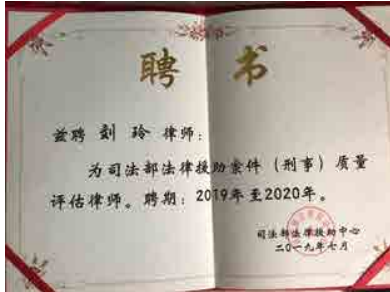 聘书
兹聘 刘 玲 律师:
为司法部法律援助案件(刑事)质量
评估律师。聘期:2019年至2020年。
司法部法律援助中心
二〇一九年七月